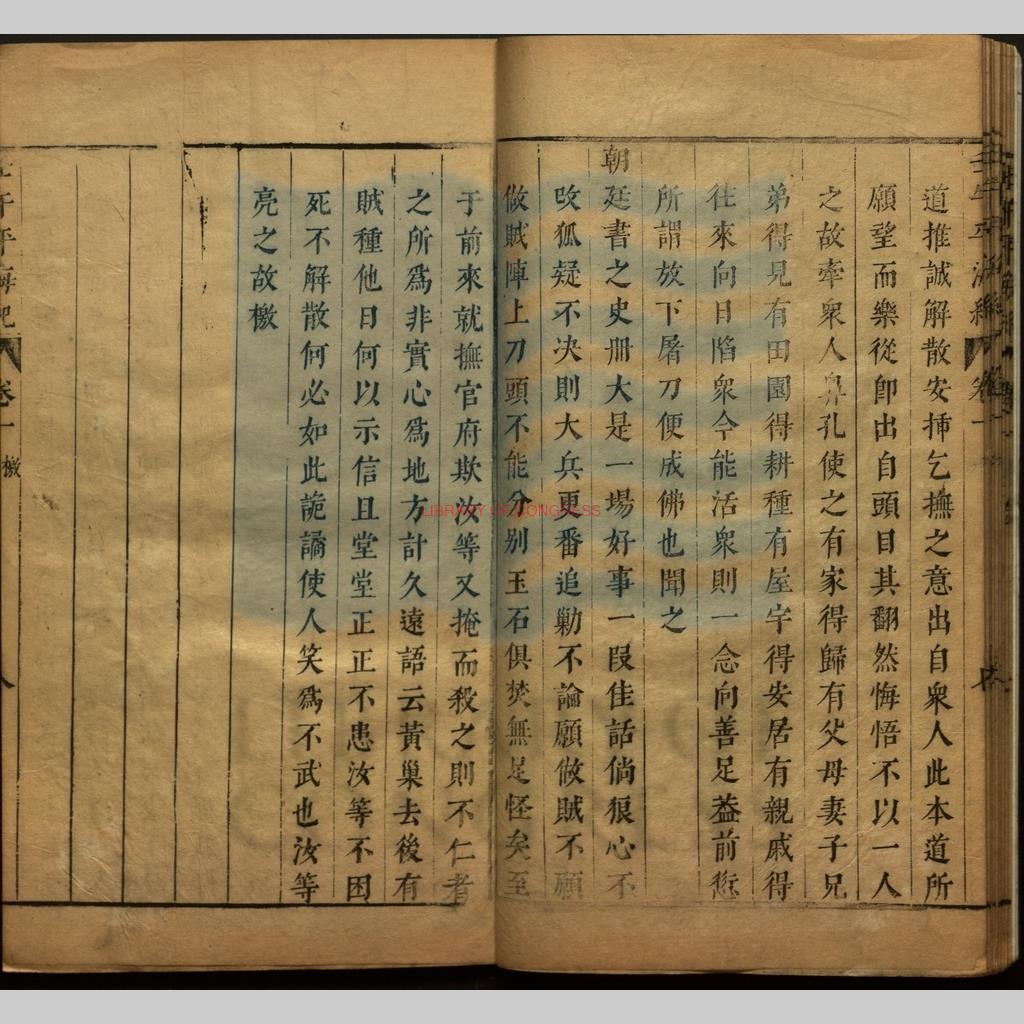 道推誠解散安揷乞撫之意出自衆人此本道所
願望而樂從卽出自頭目其翻然悔悟不以一人
之故牽衆人鼻孔使之有家得歸有父母妻子兄
弟得見有田園得耕種有屋宇得安居有親戚得
往來向日陷衆今能活衆則一念向善足葢前愆
所謂放下屠刀便成佛也聞之
朝廷書之史冊大是一場好事一段佳話倘狠心不
改狐疑不决則大兵更番追勦不論願做賊不願
做賊陣上刀頭不能分别玉石俱焚無足怪矣至
于前來就撫官府欺汝等又掩而殺之則不仁者
之所爲非實心爲地方計久遠語云黃巢去後有
賊種他日何以示信且堂堂正正不患汝等不困
死不解散何必如此詭譎使人笑爲不武也汝等
亮之故檄
壬午平海紀 卷一 檄
LIBRARY OF CONGRESS